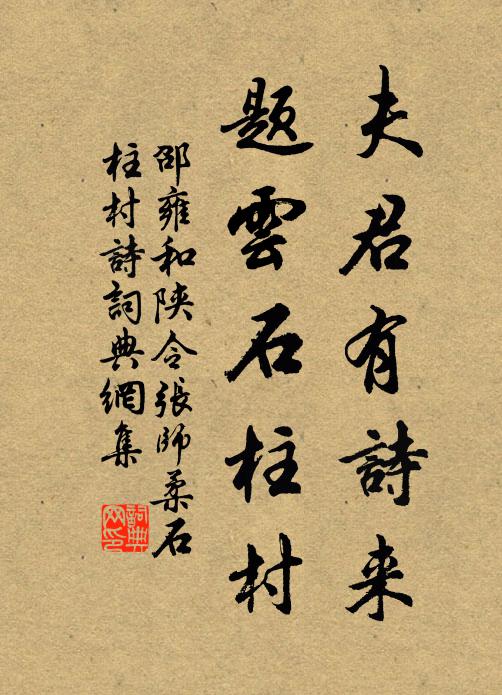 夫君有詩来
題雲石柱村
邵雍和陝令張師柔石
柱村詩詞典網集
詞典网印